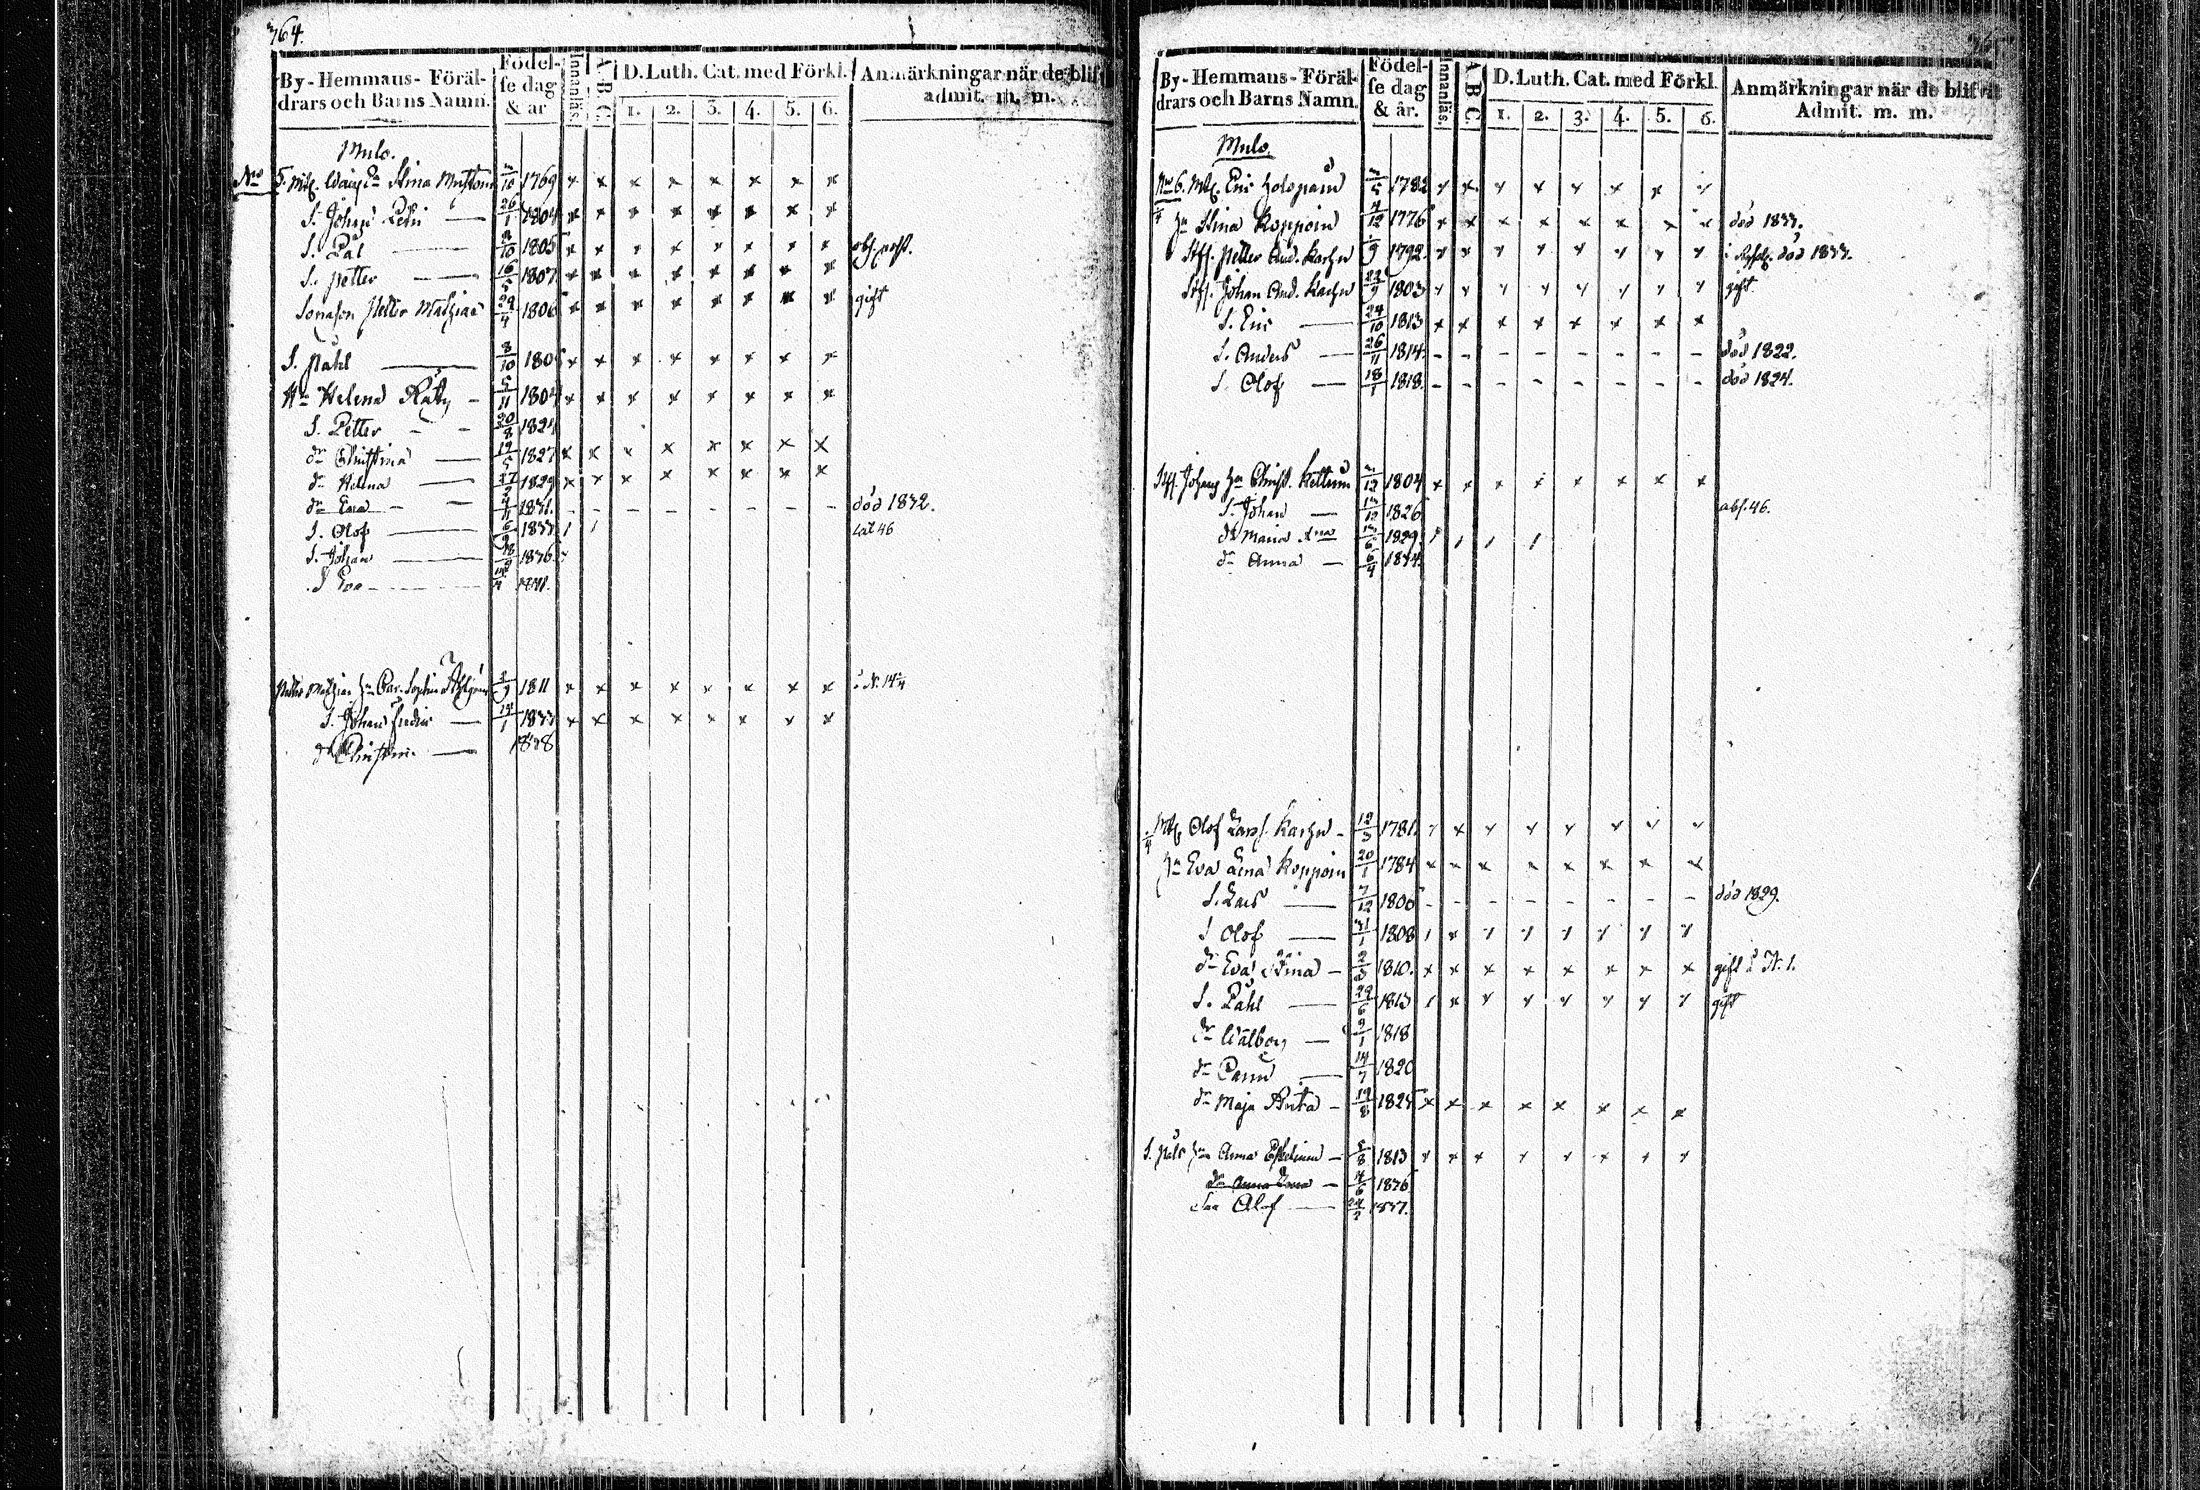 364.
By-Hemmans-Föräl-
drars och Barns Namn.
Födel-
se dag
& år
Innanläs.
A.B.C.
D. Luth. Cat. med Förkl.
1. 2. 3. 4. 5. 6.
Anmärkningar när de blif
admit. m. m.
Mulo.
No 5. Stina 3/10 1769 x x x x x x x x
S. Johan Petri — 26/1 1804 x x x x x x x x
S. Pål — 1805 x x x x x x x x
S. Petter — 16/5 1807 x x x x x x x x
Sonason Petter Mathias 29/4 1806 x x x x x x x x gift
S. Påhl — 8/10 1805 x x x x x x x x
Helena Räty — 5/11 1804 x x x x x x x x
S. Petter — 20/8 1824
dr Christina — 19/5 1827 x x x x x x x x
dr Helena — 27/2 1829 x x x x x x x x
dr Eva — 1831. - - - - - - - - död 1832.
S. Olof — 1833 / /
S. Johan — 1836.
Eva — 1841.
Petter Mathias hu Car. Sophia 1811 x x x x x x x x i N. 14
S. Johan Fredric — 1833 x x x x x x x x
dr Christin. — 1838
By-Hemmans-Föräl-
drars och Barns Namn.
Födel-
se dag
& år.
Innanläs.
A B C.
D. Luth. Cat. med Förkl.
1. 2. 3. 4. 5. 6.
Anmärkningar när de blifvit
Admit. m. m.
Mulo.
No 6. Eric Holopain 3/5 1782 x x x x x x x x
hu Stina Koppoin 4/12 1776 x x x x x x x x död 1833.
Petter And. Karhu 1792. x x x x x x x x död 1833.
Johan And. Karhu 22/9 1803 x x x x x x x x gift
S. Eric — 24/10 1813 x x x x x x x x
S. Anders — 26/11 1814. - - - - - - - - död 1822.
S. Olof — 18/1 1818. - - - - - - - - död 1824.
Johans hu Christ. Kettun 3/12 1804 x x x x x x x x
S. Johan — 1826 abs. 46.
dr Maria — 1829. / / / /
dr Anna — 6/4 1834.
Olof Larss. Karhu — 12/3 1781. x x x x x x x x
hu Eva Lena Koppoin 20/1 1784 x x x x x x x x
S. Lars — 7/12 1806 - - - - - - - - död 1829.
S Olof — 31/1 1808 / x x x x x x x
dr Eva Stina — 2/3 1810. x x x x x x x x gift i N. 1.
S. Påhl — 22/6 1813 / x x x x x x x gift
dr Walborg — 9/1 1818
dr Carin — 14/7 1820
dr Maja — 19/8 1825 x x x x x x x x
S. Påls hu Anna — 5/8 1813 x x x x x x x x
dr Anna Lena — 4/6 1836
Olof — 1837.